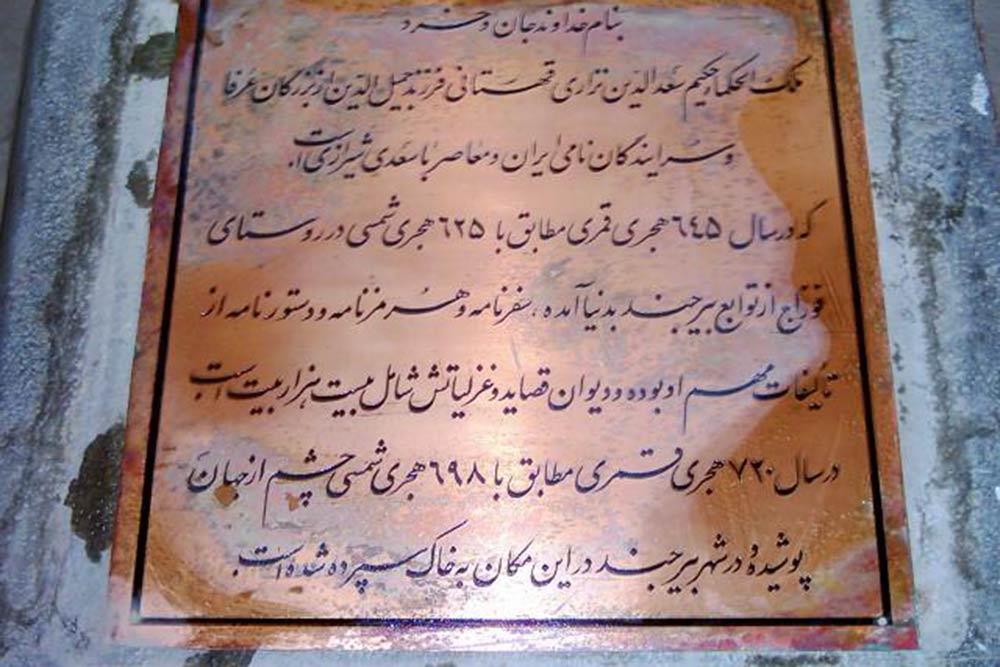 بنام خداوند جان و خرد
ملک الحکما حکیم سعدالدین نزاری قهستانی فرزند جمیل الدین از بزرگان عرفا
و سرایندگان نامی ایران و معاصر با سعدی شیرازی است.
که در سال ٦٤٥ هجری قمری مطابق با ٦٢٥ هجری شمسی در روستای
فوداج از توابع بیرجند بدنیا آمده ، سفرنامه و هرمزنامه و دستورنامه از
تألیفات مهم او بوده و دیوان قصاید و غزلیاتش شامل بیست هزار بیت است
در سال ٧٢٠ هجری قمری مطابق با ٦٩٨ هجری شمسی چشم از جهان
پوشیده و در شهر بیرجند در این مکان به خاک سپرده شده است.